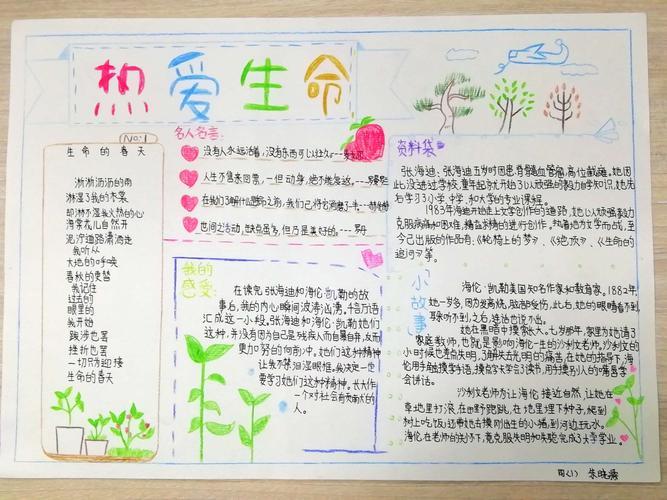 热爱生命
No:1
生命的春天
淅淅沥沥的雨
淋湿了我的衣裳
却淋不湿我火热的心
海棠花儿自然开
泥泞道路潇洒走
我听从
大地的呼唤
春秋的变替
我记住
过去的
眼里的
我开始
跋涉也罢
挫折也罢
一切只为迎接
生命的春天
名人名言:
没有人永远活着,没有东西可以经久
人生不售来回票,一但动身,绝不能复返。
我的感受:
在读完张海迪和海伦·凯勒的故
事后,我的内心瞬间波涛汹涌,千言万语
汇成这一小段,张海迪和海伦·凯勒她们
这种,并没有因为自己是残疾人而自暴自弃,反而
更加努力的向前冲。她们这种精神
让我不禁泪湿眼眶。我决定一定
要学习她们这种精神。长大作
一个对社会有贡献的人。
资料袋
张海迪:张海迪五岁时因患脊髓血管瘤,高位截瘫,她因
此没进过学校,童年起就开始以顽强的毅力自学知识,她先
后学习了小学、中学、和大学的专业课程。
1983年海迪开始走上文学创作的道路,她以顽强毅力
克服病痛和困难,精益求精的进行创作,执着地为文学而战,至
今己出版的作品有:《轮椅上的梦》、《绝顶》、《生命的
追问》等。
小故事
海伦·凯勒美国知名作家和教育家。1882年,
她一岁多,因为发高烧,脑部受伤,此后,她的眼睛看不到,
耳听不到,之后,连话也说不出。
她在黑暗中摸索长大。七岁那年,家里为她请了
家庭教师,也就是影响海伦一生的沙利文老师。沙利文的
小时候也差点失明,了解失去光明的痛苦。在她的指导下,海
伦用手触摸学手语,摸点字学会了读书,用手摸别人的嘴唇学
会讲话。
沙利文老师为让海伦接近自然,让她在
草地里打滚,在田野跑跳,在地里埋下种子,爬到
树上吃饭;还带她去摸刚出生的小猪,到河边玩水。
海伦在老师的关怀下,竟克服失明和失聪,完成了大学学业。
四(1)